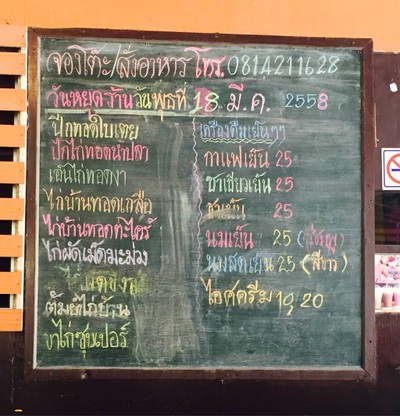 จองโต๊ะ/สั่งอาหาร โทร. 0814211628
วันหยุดร้าน วันพุธที่ 18 มี.ค. 2558
ปีกทอดใบเตย
ปีกไก่ทอดน้ำปลา
เอ็นไก่ทอดงา
ไก่บ้านทอดเกลือ
ไก่บ้านทอดตะไคร้
ไก่ผัดเม็ดมะม่วง
ต้มยำไก่บ้าน
ขาไก่ซุปเปอร์
เครื่องดื่มเย็นๆ
กาแฟเย็น 25
ชาเขียวเย็น 25
ชาเย็น 25
นมเย็น 25 (สีชมพู)
นมสดเย็น 25 (สีขาว)
ไอศครีม 19, 20